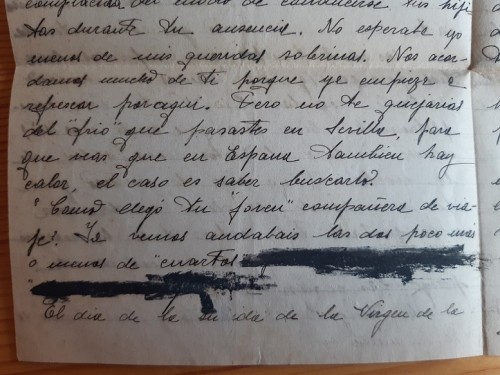 complacida del modo de conducirse tus hiji
tas durante tu ausencia. No esperaba yo
menos de mis queridas sobrinas. Nos acor-
damos mucho de ti porque ya empieza a
refrescar por aqui. Pero no te quejarias
del "frio" que pasastes en Sevilla, para
que veas que en España tambien hay
calor, el caso es saber buscarlo.
"Como elegó tu "joven" compañera de via-
je". Ya vemos andabais las dos poco mas
o menos de "cuartos
El dia de la su ida de la Virgen de la